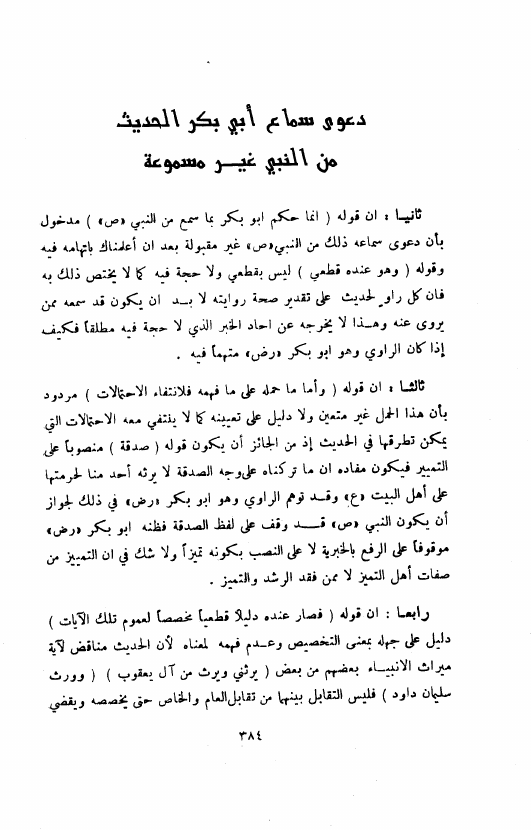 دعوى سماع أبي بكر الحديث
من النبي غيـر مسموعة
ثانيا : ان قوله ( انما حكم ابو بكر بما سمع من النبي «ص» ) مدخول
بأن دعوى سماعه ذلك من النبي«ص» غير مقبولة بعد ان أعلمناك باتهامه فيه
وقوله ( وهو عنده قطعي ) ليس بقطعي ولا حجة فيه كما لا يختص ذلك به
فان كل راوٍ لحديث على تقدير صحة روايته لا بـد ان يكون قد سمعه ممن
يروى عنه وهـذا لا يخرجه عن احاد الخبر الذي لا حجة فيه مطلقاً فكيف
إذا كان الراوي وهو ابو بكر «رض» متهماً فيه .
ثالثـا : ان قوله ( وأما ما حمله على ما فهمه فلانتفاء الاحتمالات ) مردود
بأن هذا الحمل غير متعين ولا دليل على تعيينه كما لا ينتفي معه الاحتمالات التي
يمكن تطرقها في الحديث إذ من الجائز أن يكون قوله ( صدقة ) منصوباً على
التمييز فيكون مفاده ان ما تركناه على وجه الصدقة لا يرثه أحد منا لحرمتها
على أهل البيت «ع» وقـد توهم الراوي وهو ابو بكر «رض» في ذلك لجواز
أن يكون النبي «ص» قـــد وقف على لفظ الصدقة فظنه ابو بكر «رض»
موقوفاً على الرفع بالخبرية لا على النصب بكونه تميزاً ولا شك في ان التمييز من
صفات أهل التميز لا ممن فقد الرشد والتميز .
رابعـا : ان قوله ( فصار عنده دليلاً قطعياً مخصصاً لعموم تلك الآيات )
دليل على جهله بمعنى التخصيص وعـدم فهمه لمعناه لأن الحديث مناقض لآية
ميراث الانبيـاء بعضهم من بعض ( يرثني ويرث من آل يعقوب ) ( وورث
سليمان داود ) فليس التقابل بينهما من تقابل العام والخاص حتى يخصصه ويقضي
٣٨٤